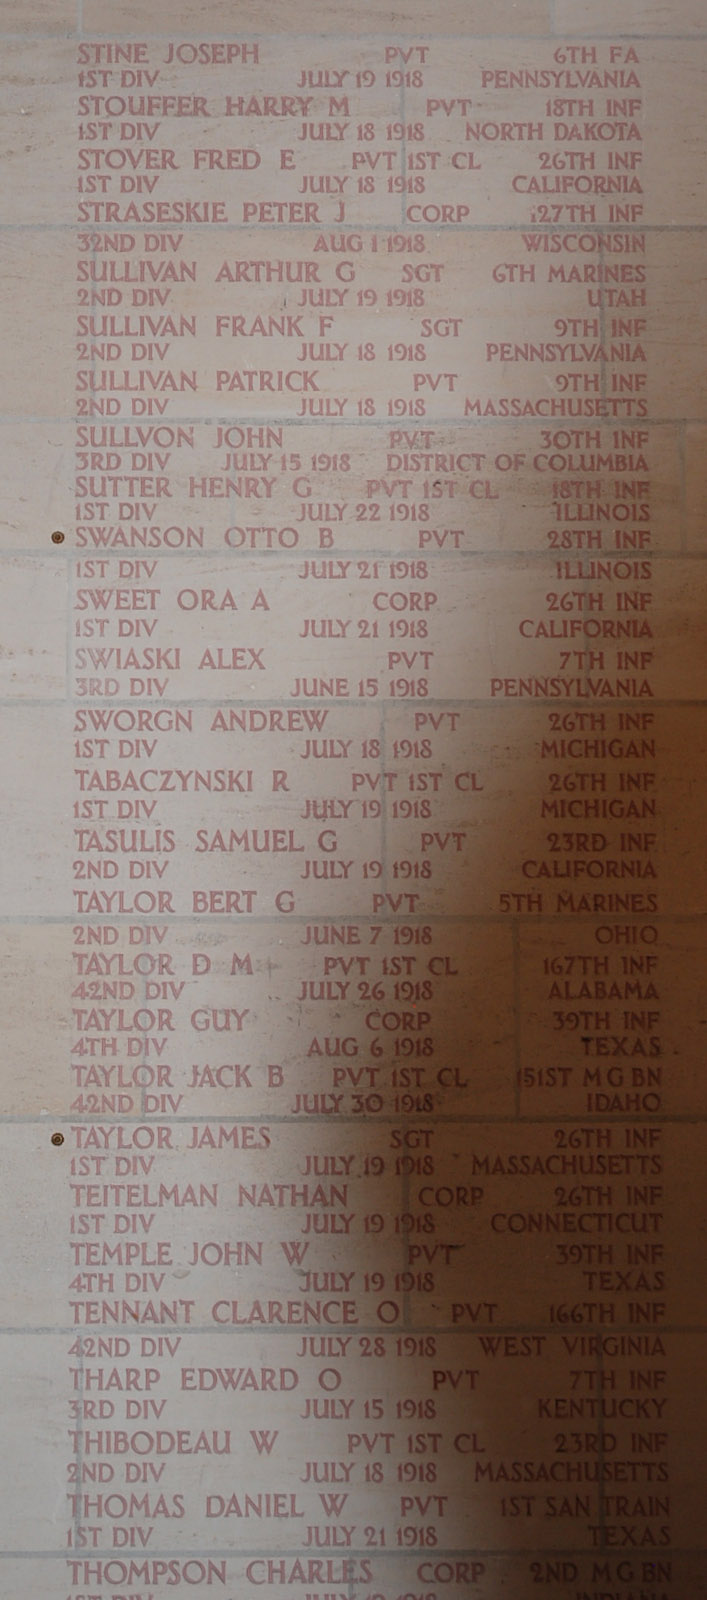 STINE JOSEPH PVT 6TH FA
1ST DIV JULY 19 1918 PENNSYLVANIA
STOUFFER HARRY M PVT 18TH INF
1ST DIV JULY 18 1918 NORTH DAKOTA
STOVER FRED E PVT 1ST CL 26TH INF
1ST DIV JULY 18 1918 CALIFORNIA
STRASESKIE PETER J CORP 127TH INF
32ND DIV AUG 1 1918 WISCONSIN
SULLIVAN ARTHUR G SGT 6TH MARINES
2ND DIV JULY 19 1918 UTAH
SULLIVAN FRANK F SGT 9TH INF
2ND DIV JULY 18 1918 PENNSYLVANIA
SULLIVAN PATRICK PVT 9TH INF
2ND DIV JULY 18 1918 MASSACHUSETTS
SULLVON JOHN PVT 30TH INF
3RD DIV JULY 15 1918 DISTRICT OF COLUMBIA
SUTTER HENRY G PVT 1ST CL 18TH INF
1ST DIV JULY 22 1918 ILLINOIS
SWANSON OTTO B PVT 28TH INF
1ST DIV JULY 21 1918 ILLINOIS
SWEET ORA A CORP 26TH INF
1ST DIV JULY 21 1918 CALIFORNIA
SWIASKI ALEX PVT 7TH INF
3RD DIV JUNE 15 1918 PENNSYLVANIA
SWORGN ANDREW PVT 26TH INF
1ST DIV JULY 18 1918 MICHIGAN
TABACZYNSKI R PVT 1ST CL 26TH INF
1ST DIV JULY 19 1918 MICHIGAN
TASULIS SAMUEL G PVT 23RD INF
2ND DIV JULY 19 1918 CALIFORNIA
TAYLOR BERT G PVT 5TH MARINES
2ND DIV JUNE 7 1918 OHIO
TAYLOR D M PVT 1ST CL 167TH INF
42ND DIV JULY 26 1918 ALABAMA
TAYLOR GUY CORP 39TH INF
4TH DIV AUG 6 1918 TEXAS
TAYLOR JACK B PVT 1ST CL 151ST M G BN
42ND DIV JULY 30 1918 IDAHO
TAYLOR JAMES SGT 26TH INF
1ST DIV JULY 19 1918 MASSACHUSETTS
TEITELMAN NATHAN CORP 26TH INF
1ST DIV JULY 19 1918 CONNECTICUT
TEMPLE JOHN W PVT 39TH INF
4TH DIV JULY 19 1918 TEXAS
TENNANT CLARENCE O PVT 166TH INF
42ND DIV JULY 28 1918 WEST VIRGINIA
THARP EDWARD O PVT 7TH INF
3RD DIV JULY 15 1918 KENTUCKY
THIBODEAU W PVT 1ST CL 23RD INF
2ND DIV JULY 18 1918 MASSACHUSETTS
THOMAS DANIEL W PVT 1ST SAN TRAIN
1ST DIV JULY 21 1918 TEXAS
THOMPSON CHARLES CORP 2ND M G BN
1ST DIV JULY 1918 INDIANA